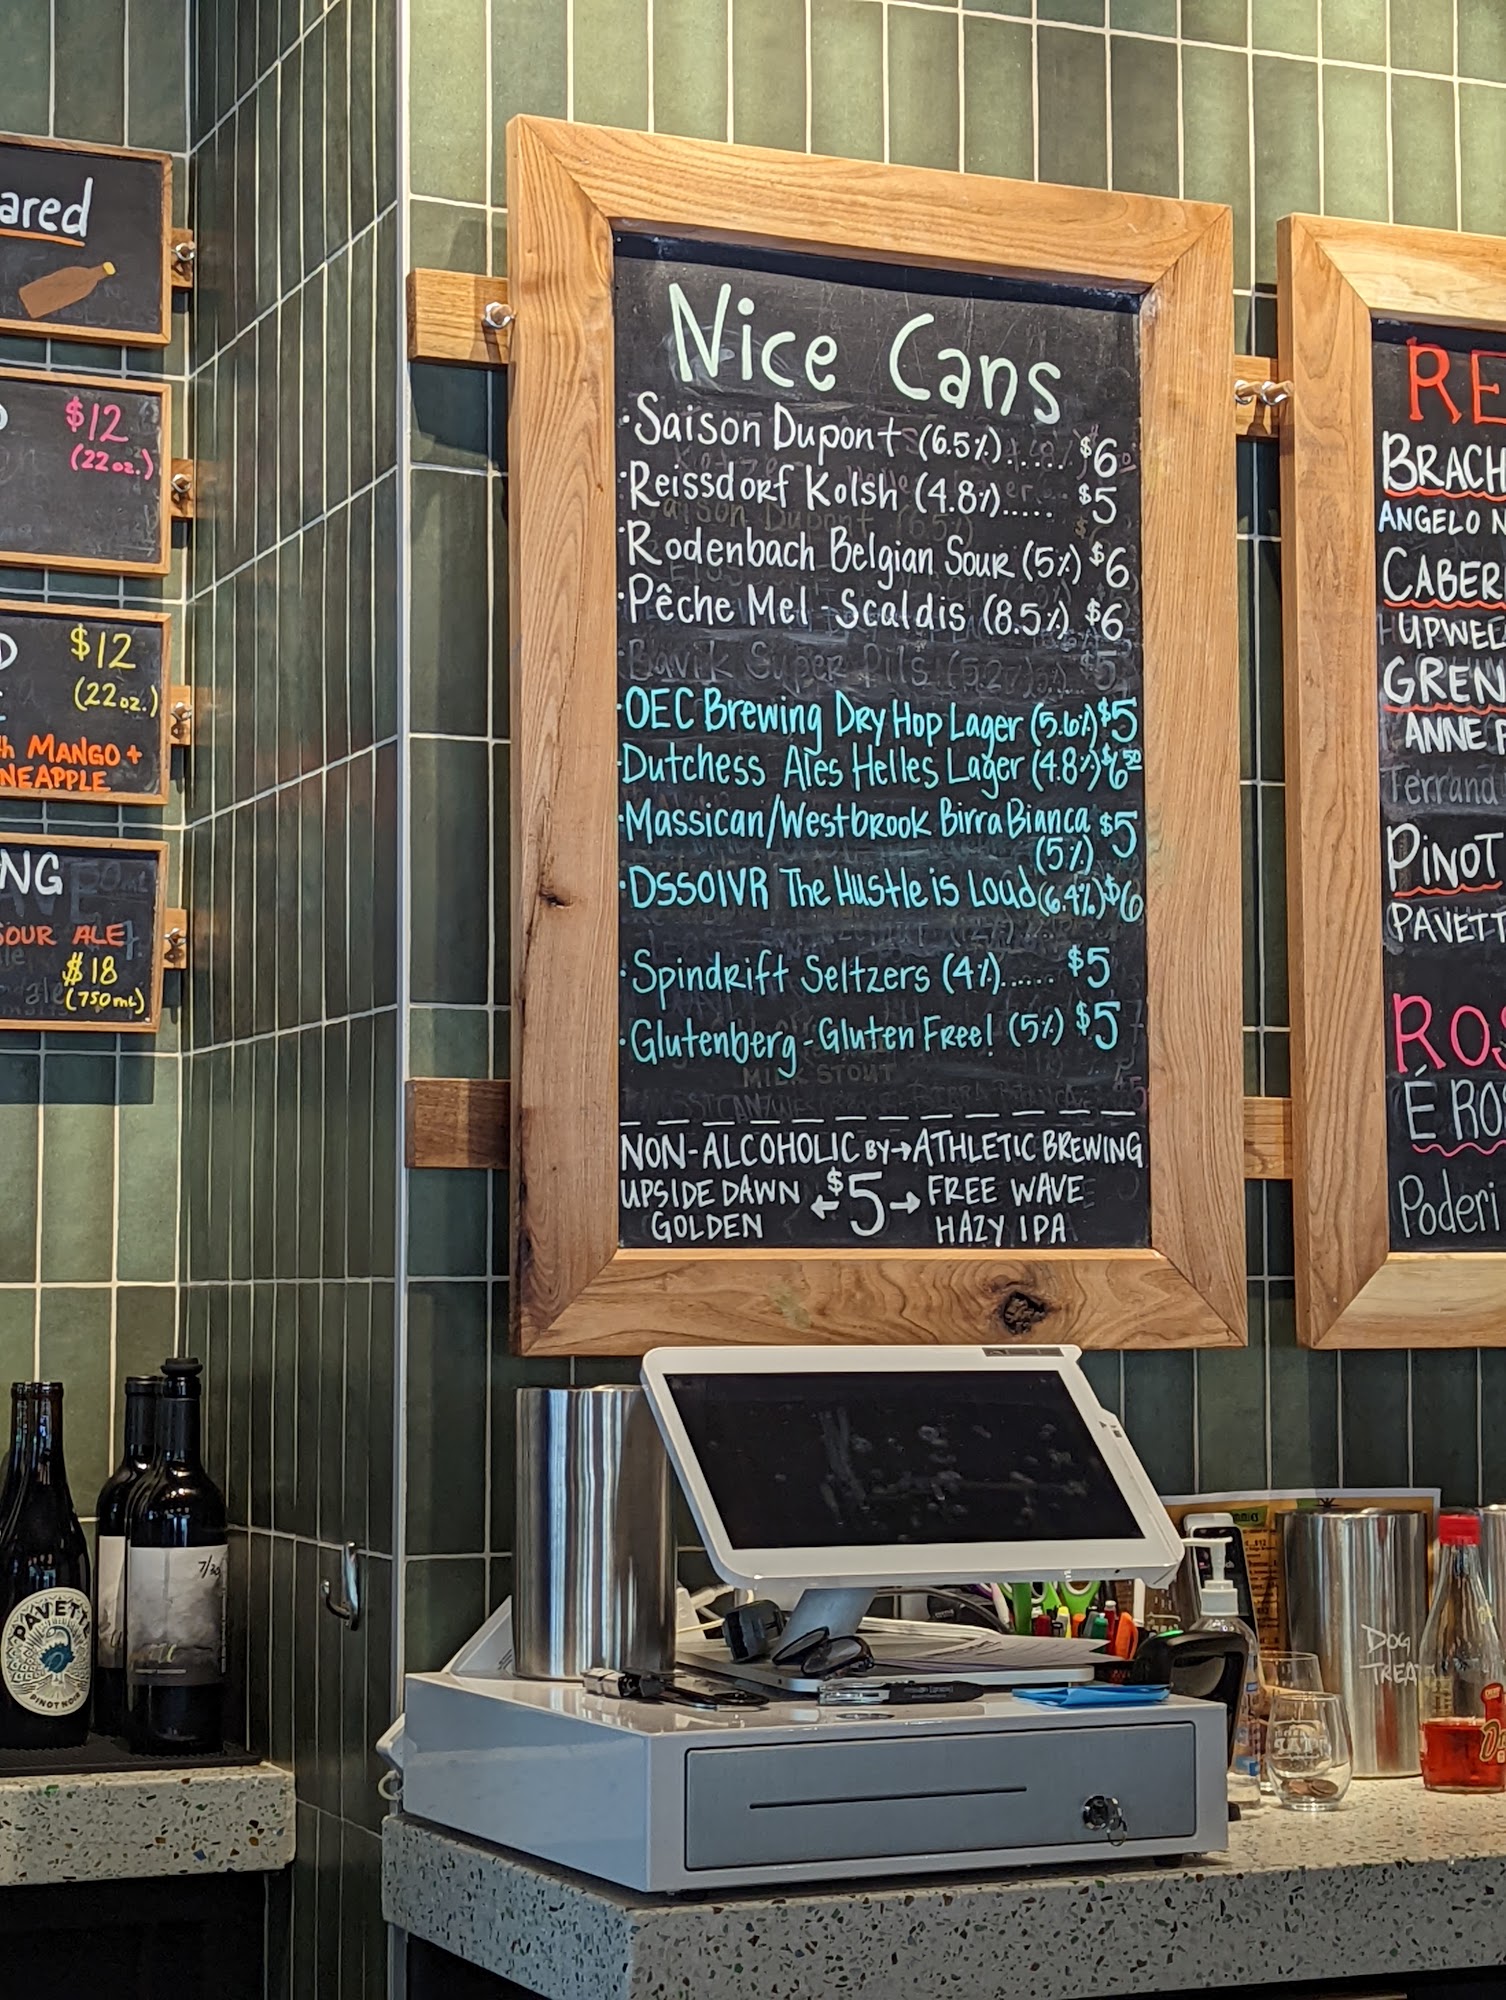 ared
$12
(22oz.)
D $12
(22oz.)
MANGO +
NEAPPLE
NG
SOUR ALE
$18
(750mL)
Nice Cans
·Saison Dupont (6.5%)...... $6
·Reissdorf Kolsh (4.8%)..... $5
·Rodenbach Belgian Sour (5%) $6
·Pêche Mel - Scaldis (8.5%) $6
Bavik Super Pils (5.2%) $5
·OEC Brewing Dry Hop Lager (5.6%) $5
·Dutchess Ales Helles Lager (4.8%) $6.50
·Massican/Westbrook Birra Bianca $5
(5%)
·DSSOLVR The Hustle is Loud (6.4%) $6
·Spindrift Seltzers (4%)...... $5
·Glutenberg - Gluten Free! (5%) $5
MILK STOUT
NON-ALCOHOLIC BY→ATHLETIC BREWING
UPSIDE DAWN ←$5→ FREE WAVE
GOLDEN HAZY IPA
RE
BRACH
ANGELO N
CABER
UPWEL
GREN
ANNE
Ferrand
PINOT
PAVETT
ROS
É ROS
Poderi
PAVETTE
PINOT NOIR
7/30
DOG
TREA